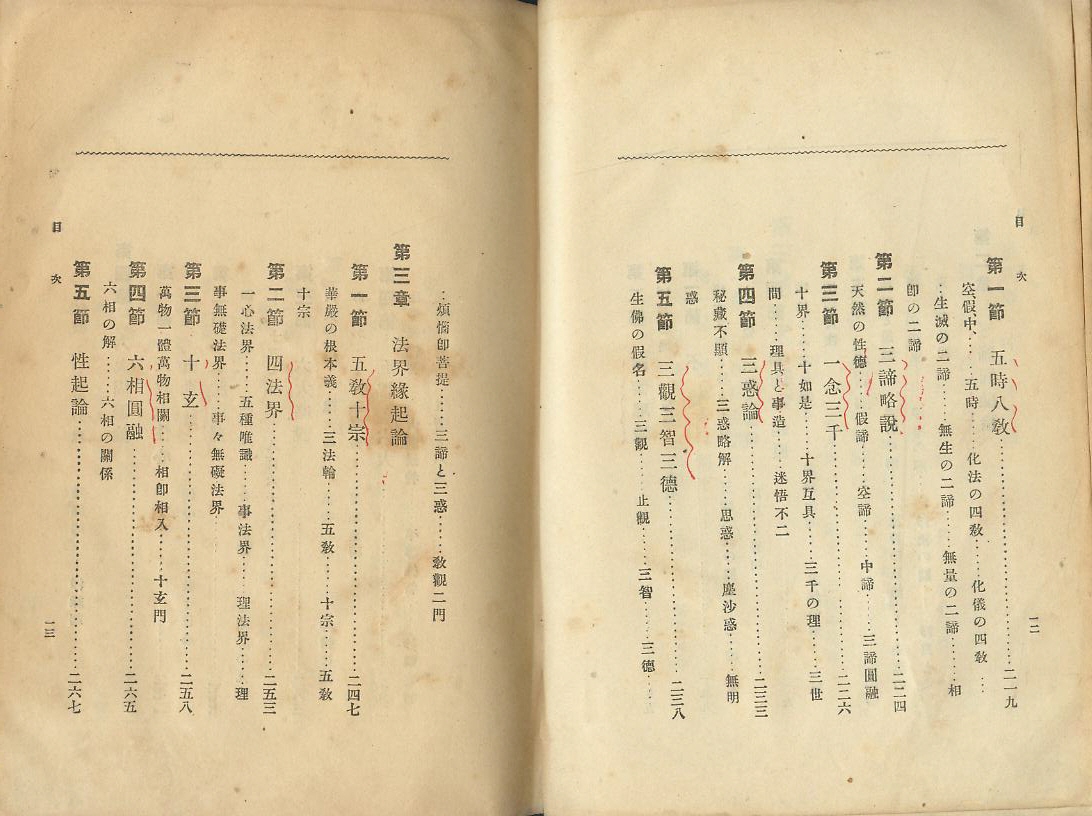 目次
一二
第一節 五時八敎……二一九
空假中……五時……化法の四敎……化儀の四敎……
……生滅の二諦……無生の二諦……無量の二諦……相
卽の二諦
第二節 三諦略說……二二四
天然の性德……假諦……空諦……中諦……三諦圓融
第三節 一念三千……二二六
十界……十如是……十界互具……三千の理……三世
間……理具と事造……迷悟不二
第四節 三惑論……二三三
秘藏不顯……三惑略解……思惑……塵沙惑……無明
惑
第五節 三觀三智三德……二三八
生佛の假名……三觀……止觀……三智……三德
……煩惱卽菩提……三諦と三惑……敎觀二門
第三章 法界緣起論
第一節 五敎十宗……二四七
華嚴の根本義……三法輪……五敎……十宗……五敎
十宗
第二節 四法界……二五三
一心法界……五種唯識……事法界……理法界……理
事無礙法界……事々無礙法界
第三節 十玄……二五八
萬物一體萬物相關……相卽相入……十玄門
第四節 六相圓融……二六五
六相の解……六相の關係
第五節 性起論……二六七
目次
一三